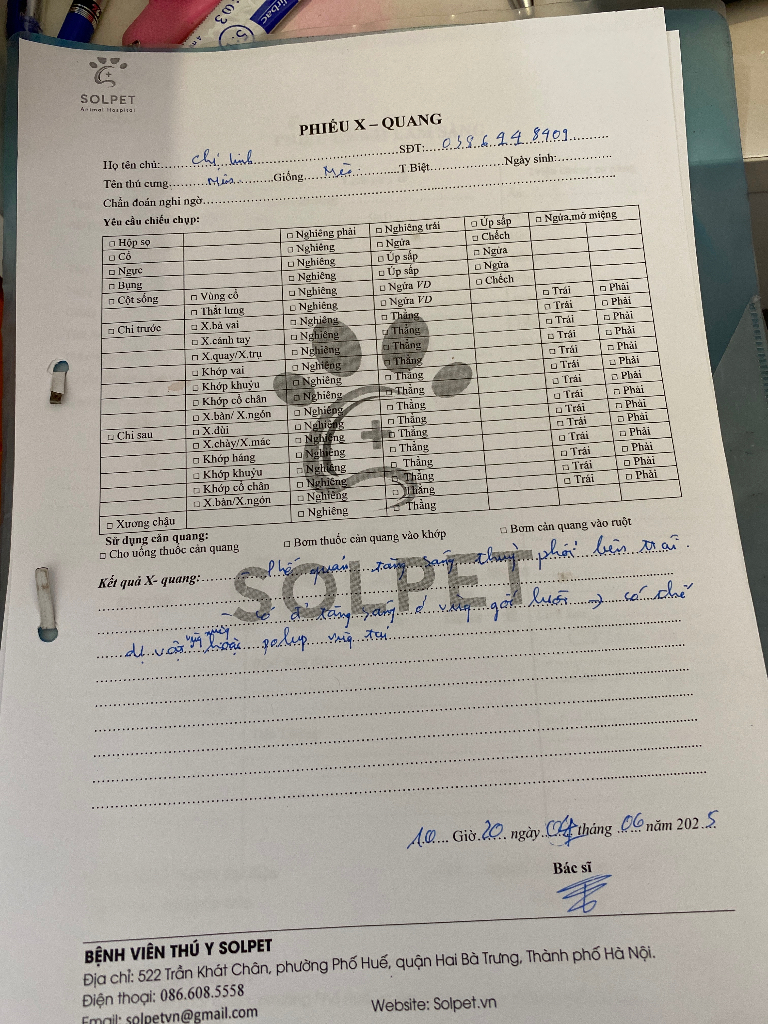 SOLPET
Animal Hospital
PHIẾU X – QUANG
Họ tên chủ: Chị Linh SĐT: 038.6 9 4 8909
Tên thú cưng Miu Giống Mèo T.Biệt Ngày sinh:
Chẩn đoán nghi ngờ
Yêu cầu chiếu chụp:
□ Hộp sọ □ Nghiêng phải □ Nghiêng trái □ Úp sấp □ Ngửa,mở miệng
□ Cổ □ Nghiêng □ Ngửa □ Chếch
□ Ngực □ Nghiêng □ Úp sấp □ Ngửa
□ Bụng □ Nghiêng □ Úp sấp □ Ngửa
□ Cột sống □ Vùng cổ □ Nghiêng □ Ngửa VD □ Chếch
□ Thắt lưng □ Nghiêng □ Ngửa VD
□ Chi trước □ X.bả vai □ Nghiêng □ Thẳng □ Trái □ Phải
□ X.cánh tay □ Nghiêng □ Thẳng □ Trái □ Phải
□ X.quay/X.trụ □ Nghiêng □ Thẳng □ Trái □ Phải
□ Khớp vai □ Nghiêng □ Thẳng □ Trái □ Phải
□ Khớp khuỷu □ Nghiêng □ Thẳng □ Trái □ Phải
□ Khớp cổ chân □ Nghiêng □ Thẳng □ Trái □ Phải
□ X.bàn/ X.ngón □ Nghiêng □ Thẳng □ Trái □ Phải
□ Chi sau □ X.đùi □ Nghiêng □ Thẳng □ Trái □ Phải
□ X.chày/X.mác □ Nghiêng □ Thẳng □ Trái □ Phải
□ Khớp háng □ Nghiêng □ Thẳng □ Trái □ Phải
□ Khớp khuỷu □ Nghiêng □ Thẳng □ Trái □ Phải
□ Khớp cổ chân □ Nghiêng □ Thẳng □ Trái □ Phải
□ X.bàn/X.ngón □ Nghiêng □ Thẳng □ Trái □ Phải
□ Xương chậu □ Nghiêng □ Thẳng
Sử dụng cản quang:
□ Cho uống thuốc cản quang □ Bơm thuốc cản quang vào khớp □ Bơm cản quang vào ruột
Kết quả X- quang: Phế quản tăng sáng thuỳ phổi bên trái.
- có tăng sáng ở vùng gốc lưỡi → có thể
dị vật hoặc polyp vùng
SOLPET
10 Giờ 20 ngày 04 tháng 06 năm 2025
Bác sĩ
BỆNH VIỆN THÚ Y SOLPET
Địa chỉ: 522 Trần Khát Chân, phường Phố Huế, quận Hai Bà Trưng, Thành phố Hà Nội.
Điện thoại: 086.608.5558
Email: solpetvn@gmail.com Website: Solpet.vn